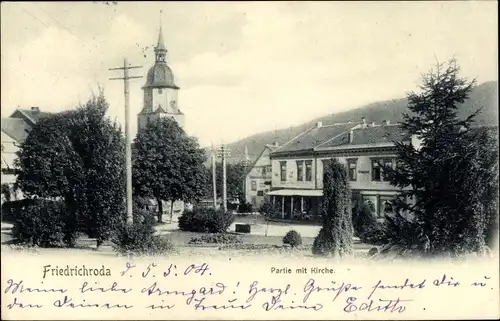 Friedrichroda d. 5. 5. 04. Partie mit Kirche.
Meine liebe Armgard! Herzl. Grüße sendet Dir u.
den Deinen in Treue Deine Edith